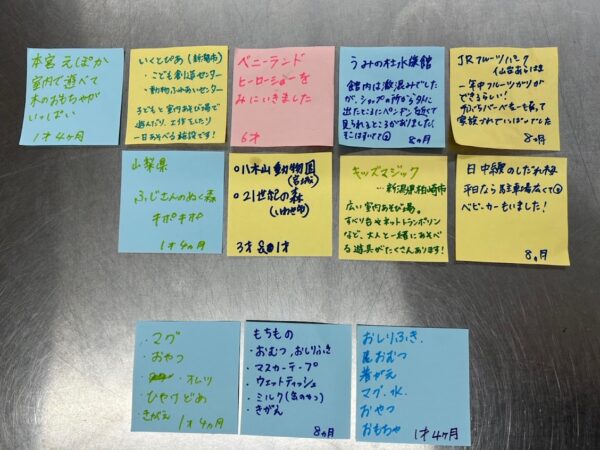 本宮 えぽか
室内で遊べて
木のおもちゃが
いっぱい
1才4ヶ月
いくとぴあ(新潟市)
・こども創造センター
・動物ふれあいセンター
子どもと室内あそび場で
遊んだり、工作をしたり
一日あそべる施設です!
ベニーランド
ヒーローショーを
みにいきました
6才
うみの杜水族館
館内は激混みでした
が、ショップの所から外に
出たところにペンギンを近くで
見られるところがありました!
そこはすいてる
8ヵ月
JRフルーツパーク
仙台あらはま
一年中フルーツがりが
できるらしい!
家族づれでいっぱいでした
8ヵ月
山梨県
ふじさんのぬく森
キポキポ
1才4ヶ月
○八木山動物園
(宮城)
○21世紀の森
(いわき市)
3才 1才
キッズマジック
…新潟県柏崎市
広い室内あそび場。
すべり台やネットトランポリン
など、大人と一緒にあそべ
る遊具がたくさんあります!
日中線のしだれ桜
平日なら駐車場広くて
ベビーカーもいました!
8ヵ月
・マグ
・おやつ
・オムツ
・ひやけどめ
・きがえ
1才4ヶ月
もちもの
・おむつ、おしりふき
・マスカーテープ
・ウェットティッシュ
・ミルク
・きがえ
8ヵ月
おしりふき、
紙おむつ
着がえ
マグ・水
おやつ
おもちゃ
1才4ヶ月